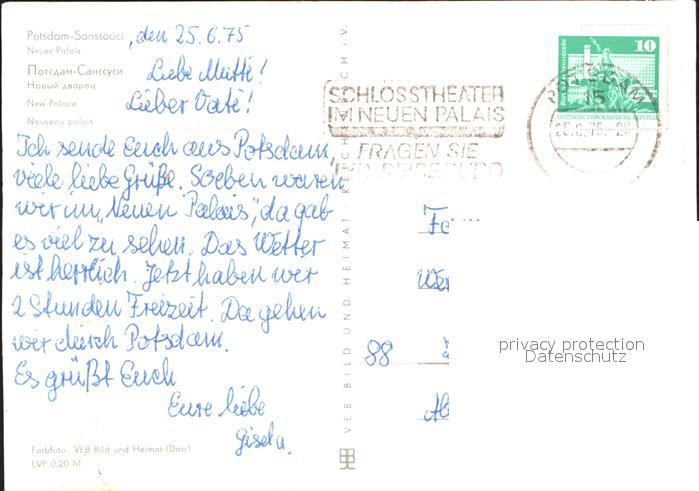 Potsdam-Sanssouci , den 25.6.75
Neues Palais
Потсдам-Санссуси
Новый дворец
New Palace
Nouveau palais
Liebe Mutti!
Lieber Vati!
Ich sende Euch aus Potsdam,
viele liebe Grüße. Soeben waren
wir im „Neuen Palais“, da gab
es viel zu sehen. Das Wetter
ist herrlich. Jetzt haben wir
2 Stunden Freizeit. Da gehen
wir durch Potsdam.
Es grüßt Euch
Eure liebe
Gisela.
Farbfoto: VEB Bild und Heimat (Darr)
EVP 0,20 M
VEB BILD UND HEIMAT REICHENBACH I. V.
SCHLOSSTHEATER
IM NEUEN PALAIS
FRAGEN SIE
10
DEUTSCHE DEMOKRATISCHE REPUBLIK
POTSDAM
15
88
privacy protection
Datenschutz